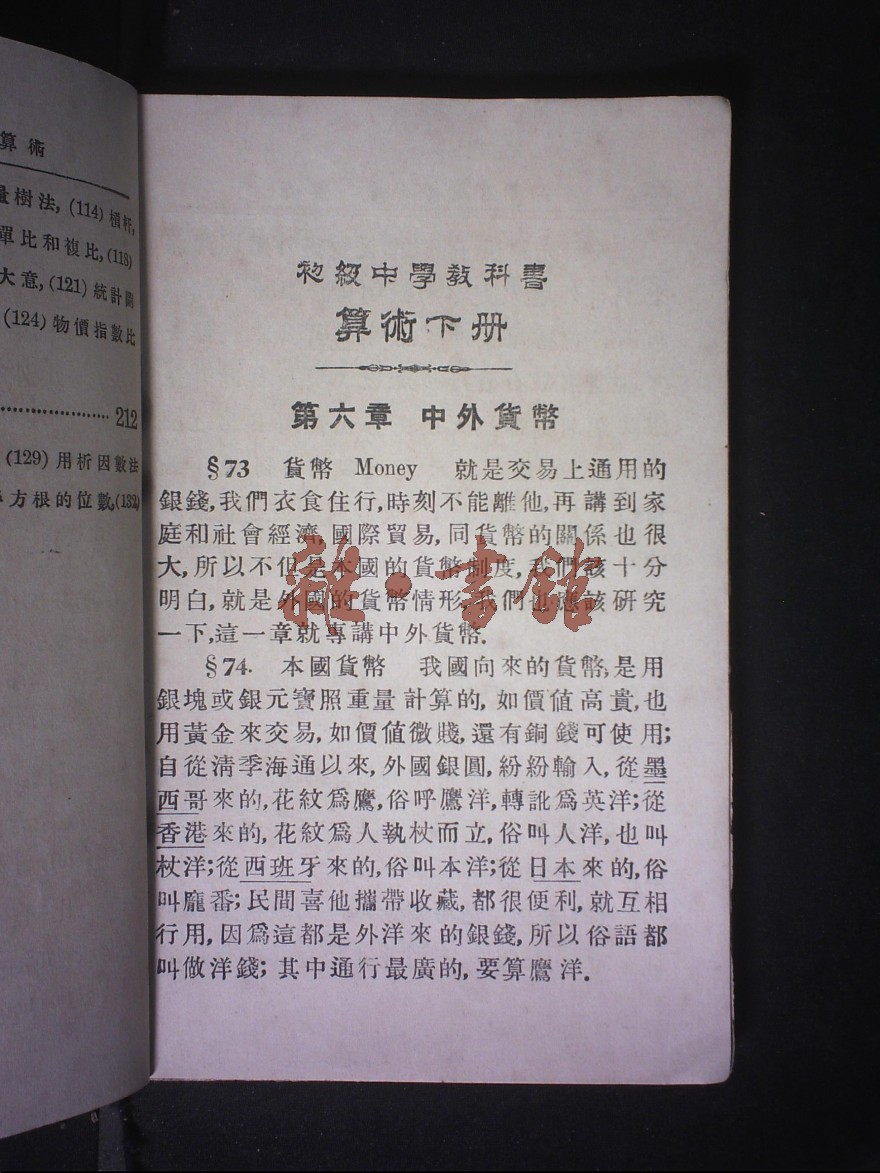 算術
量樹法, (114) 槓杆,
單比和複比, (118)
大意, (121) 統計圖
(124) 物價指數比
212
(129) 用析因數法
方根的位數, (132)
初級中學教科書
算術下册
第六章 中外貨幣
§73 貨幣 Money 就是交易上通用的
銀錢,我們衣食住行,時刻不能離他,再講到家
庭和社會經濟,國際貿易,同貨幣的關係也很
大,所以不但是本國的貨幣制度,我們該十分
明白,就是外國的貨幣情形,我們也應該研究
一下,這一章就專講中外貨幣.
§74. 本國貨幣 我國向來的貨幣,是用
銀塊或銀元寶照重量計算的,如價値高貴,也
用黃金來交易,如價値微賤,還有銅錢可使用;
自從淸季海通以來,外國銀圓,紛紛輸入,從墨
西哥來的,花紋爲鷹,俗呼鷹洋,轉訛爲英洋;從
香港來的,花紋爲人執杖而立,俗叫人洋,也叫
杖洋;從西班牙來的,俗叫本洋;從日本來的,俗
叫龐番;民間喜他攜帶收藏,都很便利,就互相
行用,因爲這都是外洋來的銀錢,所以俗語都
叫做洋錢;其中通行最廣的,要算鷹洋.
雜·書館